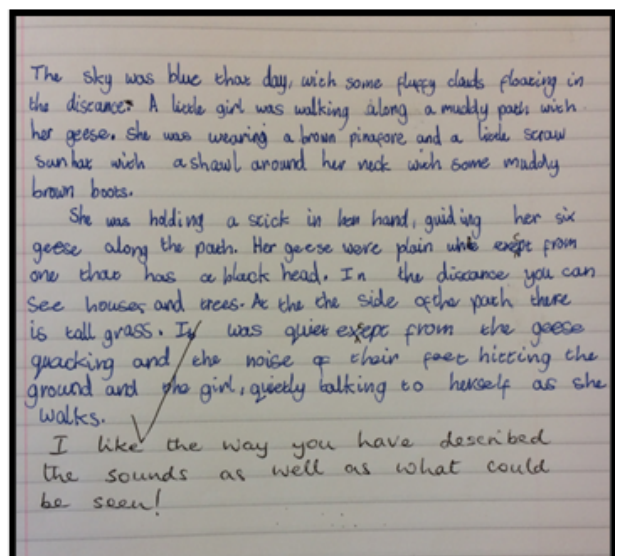 The sky was blue that day, with some fluffy clouds floating in
the distance. A little girl was walking along a muddy path with
her geese. She was wearing a brown pinafore and a little straw
sunhat with a shawl around her neck with some muddy
brown boots.
She was holding a stick in her hand, guiding her six
geese along the path. Her geese were plain white exept from
one that has a black head. In the distance you can
see houses and trees. At the the side of the path there
is tall grass. It was quiet exept from the geese
quacking and the noise of their feet hitting the
ground and the girl, quietly talking to herself as she
walks.
I like the way you have described
the sounds as well as what could
be seen!